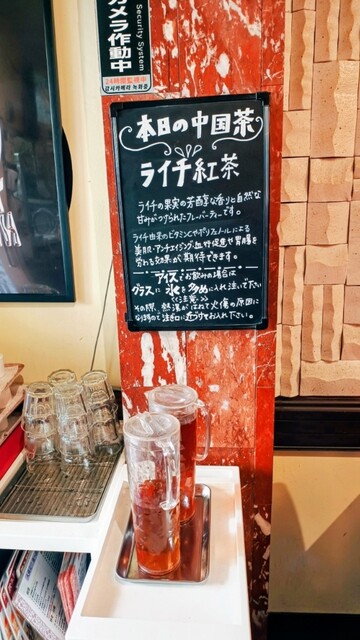 カメラ作動中
Security System
24時間監視中
감시카메라 녹화중
本日の中国茶
ライチ紅茶
ライチの果実の芳醇な香りと自然な
甘みがつけられたフレーバーティーです。
ライチ由来のビタミンCやポリフェノールによる
美肌・アンチエイジング・血行促進や胃腸を
労わる効果が期待できます。
アイスでお飲みの場合は
グラスに氷を多めに入れ注いで下さい
<<注意>>
その際、熱湯がはねて火傷の原因に
なりますので注ぎ口に近づけてお入れ下さい。